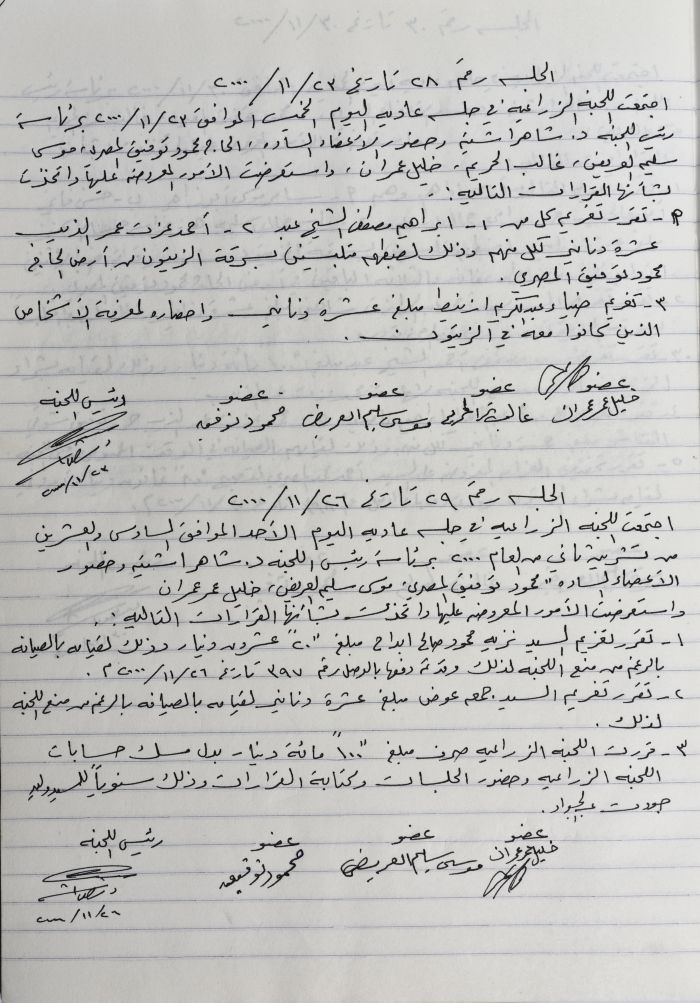 الجلسه رقم ٢٨ تاريخ ٢٣/١١/٢٠٠٠
اجتمعت اللجنة الزراعيه في جلسه عاديه اليوم الخميس الموافق ٢٣/١١/٢٠٠٠ برئاسة
رئيس اللجنه د. شاهر اشتيه وحضور الأعضاء الساده، الحاج محمود توفيق المصري، موسى
سليم العريض، غالب الحريم، خليل عمران، واستعرضت الأمور المعروضه عليها واتخذت
بشأنها القرارات التاليه:-
١- تقرر تغريم كل من ١- ابراهيم مصطفى الشيخ عيد ٢- أحمد عزت عمر الذيب
عشرة دنانير لكل منهم وذلك لضبطهم متلبسين بسرقة الزيتون من أرض الحاج
محمود توفيق المصري.
٣- تغريم ضياء عبدالكريم مبلغ عشرة دنانير واحضاره لمعرفة الأشخاص
الذين كانوا معه في الزيتون.
عضو عضو عضو عضو رئيس اللجنه
خليل عمر عمران غالب موسى سليم العريض محمود توفيق
٢٣/١١/٢٠٠٠
الجلسه رقم ٢٩ تاريخ ٢٦/١١/٢٠٠٠
اجتمعت اللجنة الزراعيه في جلسه عاديه اليوم الأحد الموافق السادس والعشرين
من تشرين ثاني من لعام ٢٠٠٠ برئاسة رئيس اللجنه د. شاهر اشتيه وحضور
الأعضاء الساده محمود توفيق المصري، موسى سليم العريض، خليل عمر عمران
واستعرضت الأمور المعروضه عليها واتخذت بشأنها القرارات التاليه:.
١- تقرر تغريم السيد نزيه محمود صالح مبلغ "٢٠" عشرون دينار وذلك لقيامه بالصيانه
بالرغم من منع اللجنه لذلك وقد تم دفعها بالوصل رقم ٣٩٧ تاريخ ٢٦/١١/٢٠٠٠ م.
٢- تقرر تغريم السيد جمعه عوض مبلغ عشرة دنانير لقيامه بالصيانه بالرغم من منع اللجنه
لذلك.
٣- قررت اللجنة الزراعيه صرف مبلغ "١٠٠" مائة دينار بدل مسك حسابات
اللجنه الزراعيه وحضور الجلسات وكتابة القرارات وذلك سنوياً للسيد وليد
جودت
عضو عضو عضو رئيس اللجنه
خليل عمر عمران موسى سليم العريض محمود توفيق
٢٦/١١/٢٠٠٠